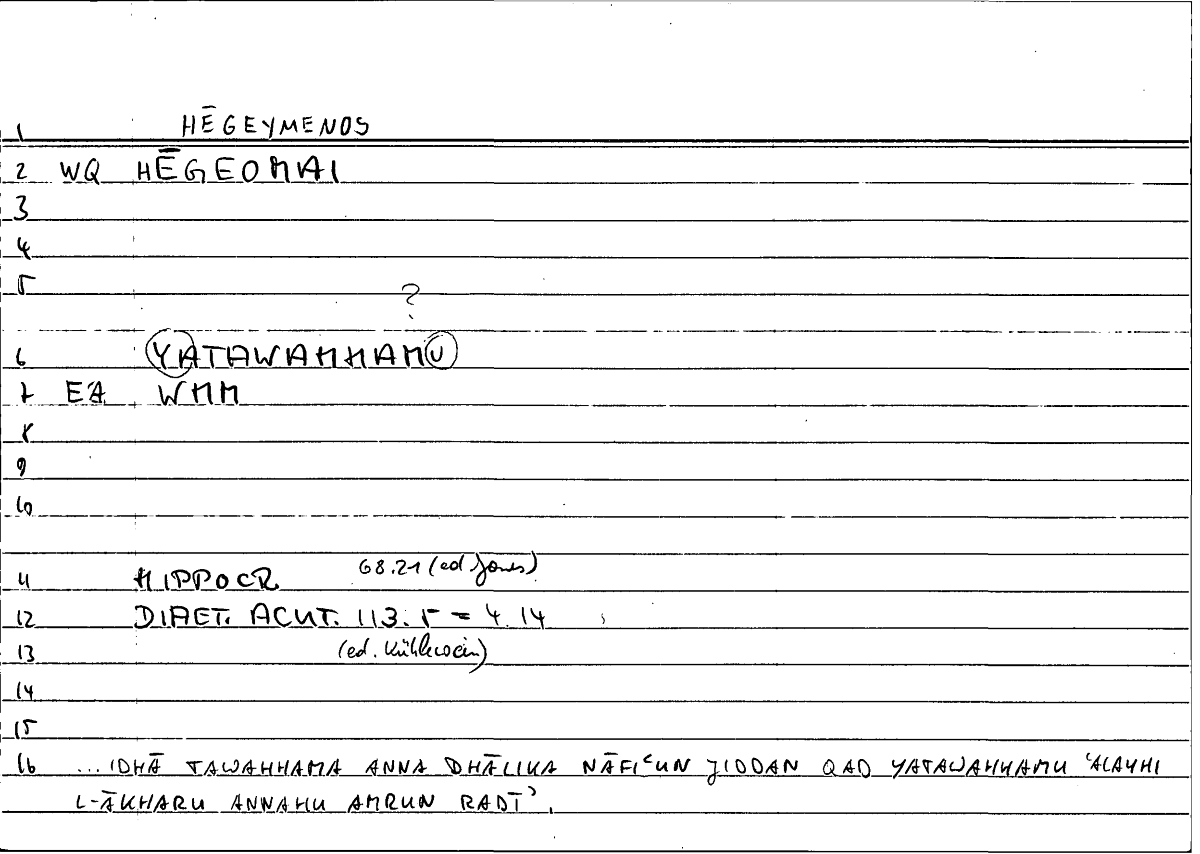 1 HĒGEYMENOS
2 WQ HĒGEOMAI
3
4
5
?
6 YATAWAHHAMU
7 EA WHM
8
9
10
68.21 (ed Jones)
11 HIPPOCR
12 DIAET. ACUT. 113.5 = 4.14
13 (ed. Kühlewein)
14
15
16 ...IDHĀ TAWAHHAMA ANNA DHĀLIKA NĀFIʿUN JIDDAN QAD YATAWAHHAMU ʿALAYHI
L-ĀKHARU ANNAHU AMRUN RADĪʾ.